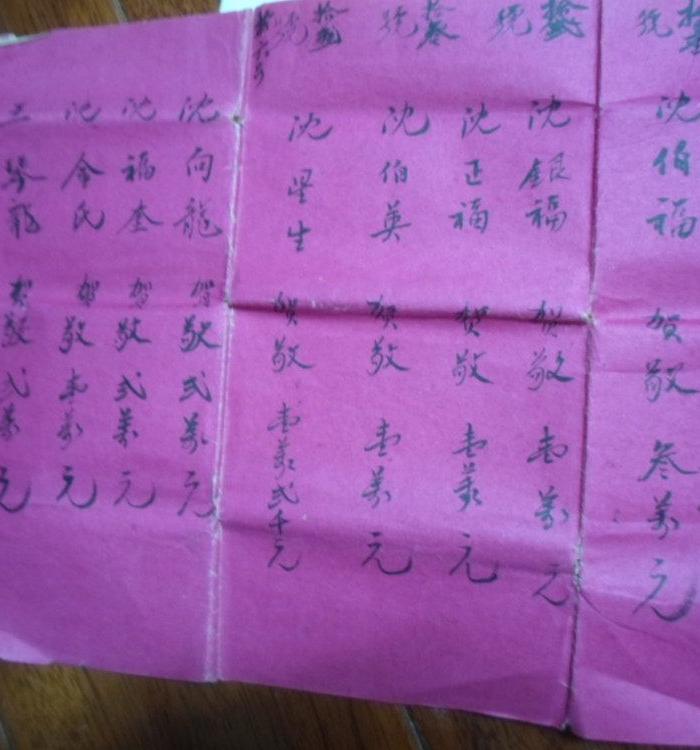 沈伯福 賀敬 叁萬元
沈銀福 賀敬 壹萬元
沈正福 賀敬 壹萬元
沈伯英 賀敬 壹萬元
沈星生 賀敬 壹萬弍千元
沈向龍 賀敬 弍萬元
沈福奎 賀敬 弍萬元
沈金氏 賀敬 壹萬元
賀敬 弍萬元